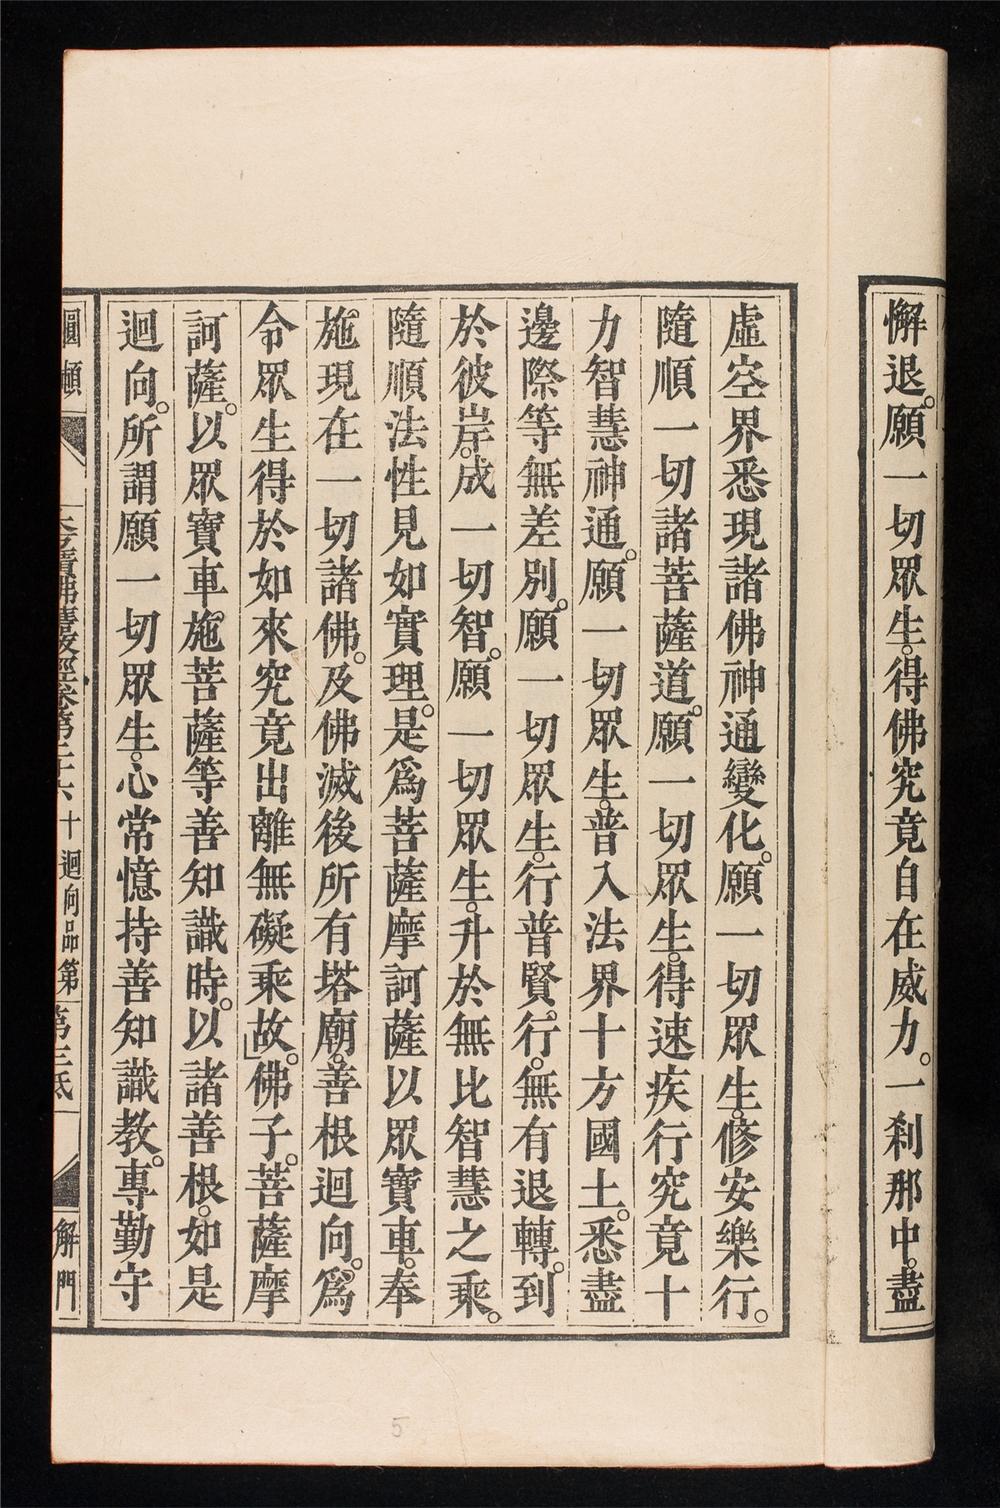 懈退。願一切眾生。得佛究竟自在威力。一剎那中。盡
虛空界悉現諸佛神通變化。願一切眾生。修安樂行。
隨順一切諸菩薩道。願一切眾生。得速疾行究竟十
力智慧神通。願一切眾生。普入法界十方國土。悉盡
邊際等無差別。願一切眾生。行普賢。行。無有退轉。到
於彼岸。成一切智。願一切眾生。升於無比智慧之乘。
隨順法性見如實理。是為菩薩摩訶薩以眾寶車。奉
施現在一切諸佛。及佛滅後所有塔廟。善根迴向。為
令眾生得於如來究竟出離無礙乘故。」佛子。菩薩摩
訶薩。以眾寶車。施菩薩等善知識時。以諸善根。如是
迴向。所謂願一切眾生。心常憶持善知識教。專勤守
十迴向品第
第三紙
解門
5